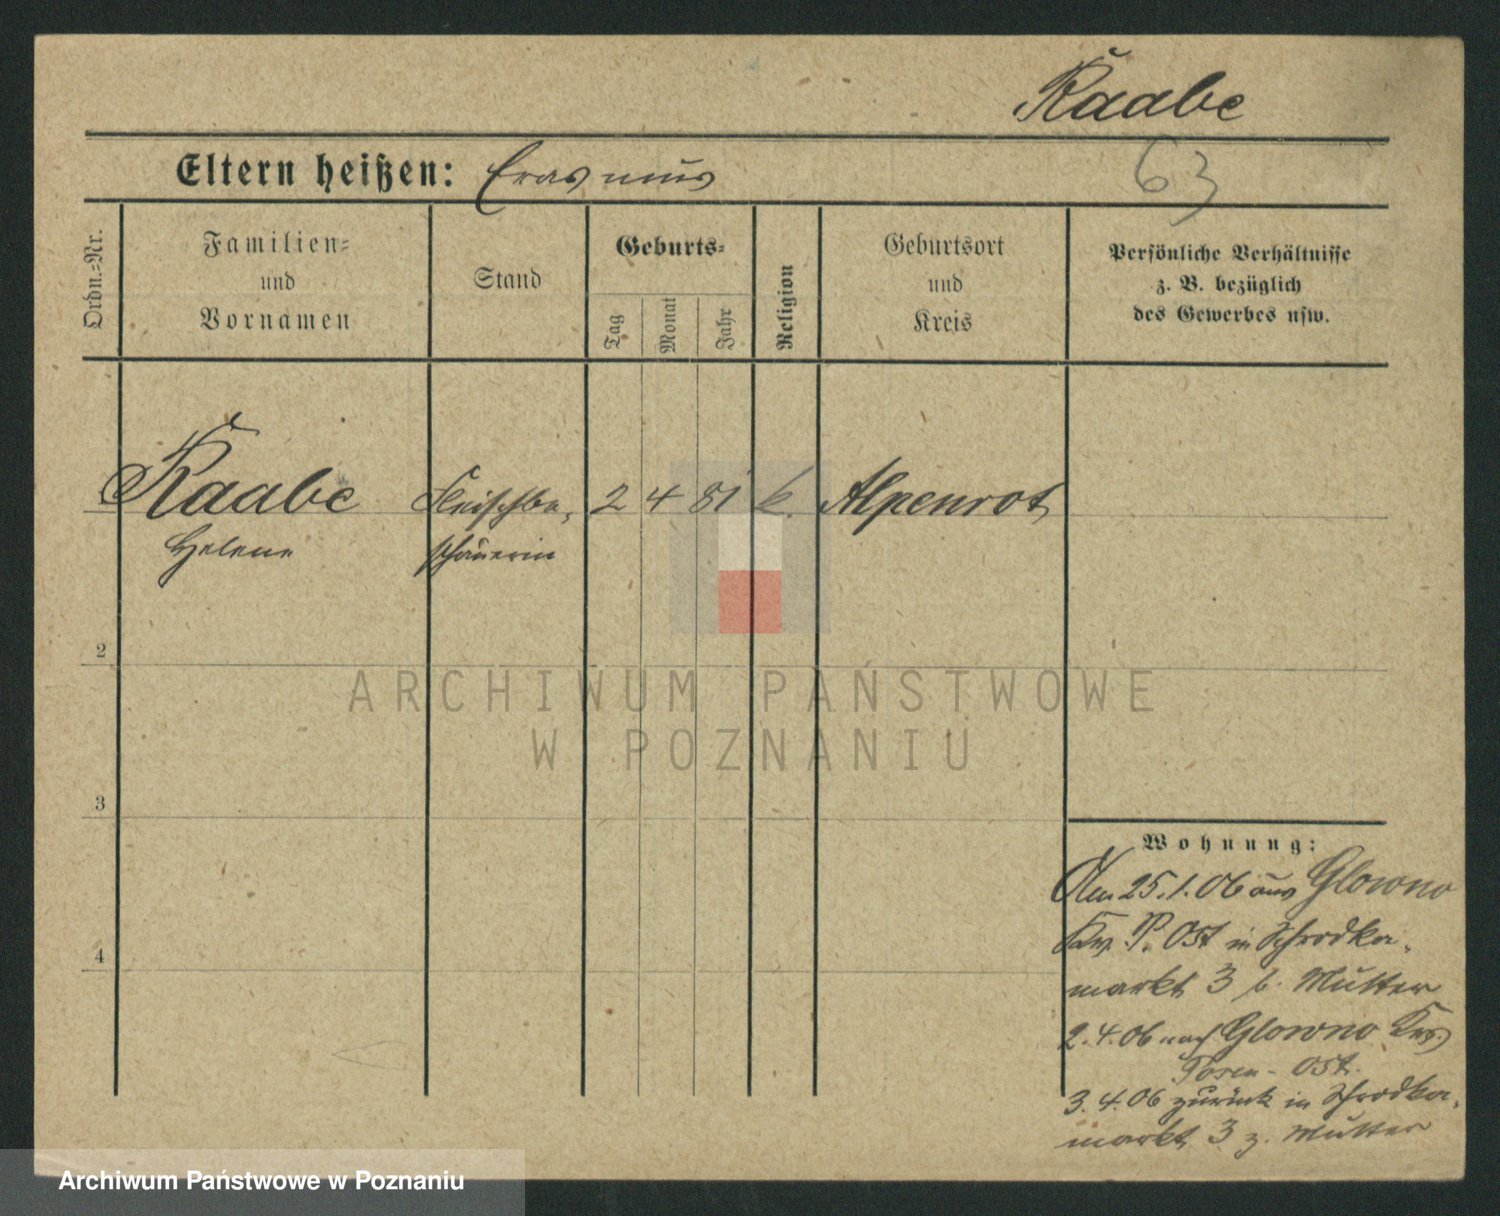 Raabe
Eltern heißen: Erasmus
63
Ordn.-Nr.
Familien-
und
Vornamen
Stand
Geburts-
Tag
Monat
Jahr
Religion
Geburtsort
und
Kreis
Persönliche Verhältnisse
z. B. bezüglich
des Gewerbes usw.
Raabe Fleischbe- 2 4 81 k. Alpenrot
Helene schauerin
2
3
4
Wohnung:
Am 25.1.06 aus Glowno
Krs. P. Ost in Schrodka-
markt 3 b. Mutter
2.4.06 nach Glowno Krs.
Posen-Ost.
3.4.06 zurück in Schrodka-
markt 3 z. Mutter
ARCHIWUM PAŃSTWOWE
W POZNANIU
Archiwum Państwowe w Poznaniu